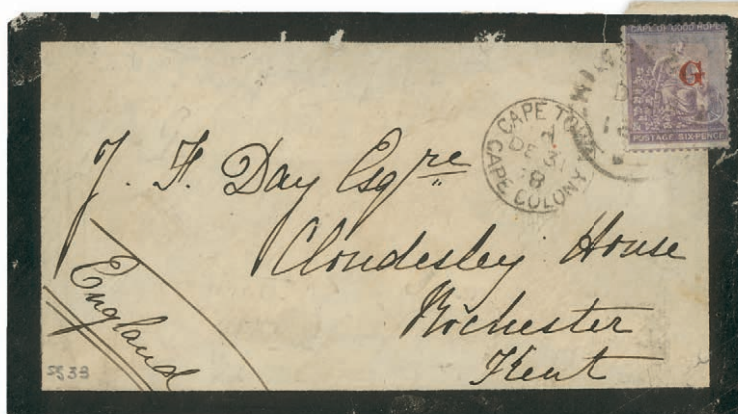 CAPE OF GOOD HOPE
G
POSTAGE SIX-PENCE
CAPE TOWN
DE 31
8
CAPE COLONY
J. F. Day Esqre
Cloudesley House
Rochester
Kent
England